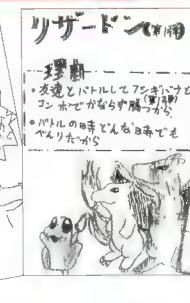 リザードン(第1弾)
理由
・友達とバトルしてフシギバナと
コンボでかならず勝つから
(第1弾)
・バトルの時どんな日時でも
べんりだから